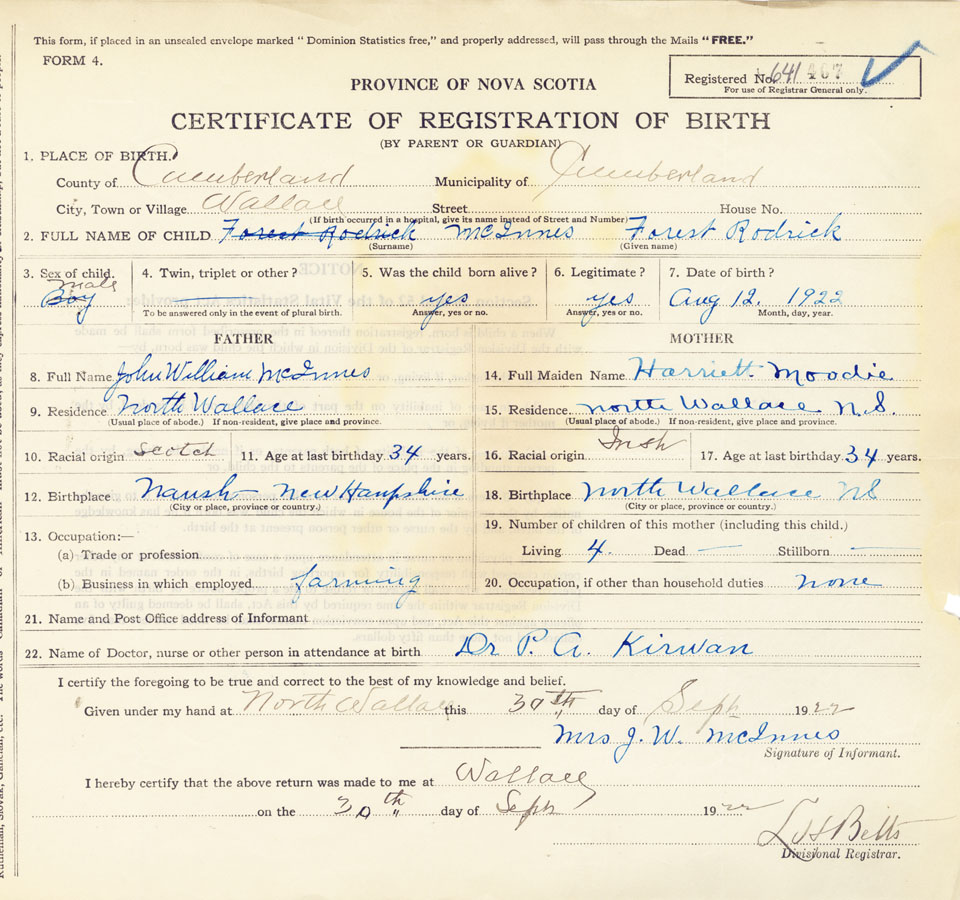 This form, if placed in an unsealed envelope marked “ Dominion Statistics free,” and properly addressed, will pass through the Mails “ FREE.”
FORM 4.
Registered No. 641 407
For use of Registrar General only.
PROVINCE OF NOVA SCOTIA
CERTIFICATE OF REGISTRATION OF BIRTH
(BY PARENT OR GUARDIAN)
1. PLACE OF BIRTH.
County of Cumberland Municipality of Cumberland
City, Town or Village Wallace Street House No.
(If birth occurred in a hospital, give its name instead of Street and Number)
2. FULL NAME OF CHILD Forest Rodrick McInnes Forest Rodrick
(Surname) (Given name)
3. Sex of child. 4. Twin, triplet or other ? 5. Was the child born alive ? 6. Legitimate ? 7. Date of birth ?
male
Boy yes yes Aug 12. 1922
To be answered only in the event of plural birth. Answer, yes or no. Answer, yes or no. Month, day, year.
FATHER MOTHER
8. Full Name John William McInnes 14. Full Maiden Name Harriett Moodie
9. Residence North Wallace 15. Residence North Wallace N.S.
(Usual place of abode.) If non-resident, give place and province. (Usual place of abode.) If non-resident, give place and province.
10. Racial origin Scotch 11. Age at last birthday 34 years. 16. Racial origin Irish 17. Age at last birthday 34 years.
12. Birthplace New Hanpshire 18. Birthplace North Wallace NS
(City or place, province or country.) (City or place, province or country.)
19. Number of children of this mother (including this child.)
13. Occupation:—
(a) Trade or profession Living 4. Dead — Stillborn —
(b) Business in which employed farming 20. Occupation, if other than household duties none
21. Name and Post Office address of Informant
22. Name of Doctor, nurse or other person in attendance at birth Dr P. A. Kirwan
I certify the foregoing to be true and correct to the best of my knowledge and belief.
Given under my hand at North Wallace this 30th day of Sept 1922
Mrs J. W. McInnes
Signature of Informant.
I hereby certify that the above return was made to me at Wallace
on the 30th day of Sept 1922
Betts
Divisional Registrar.